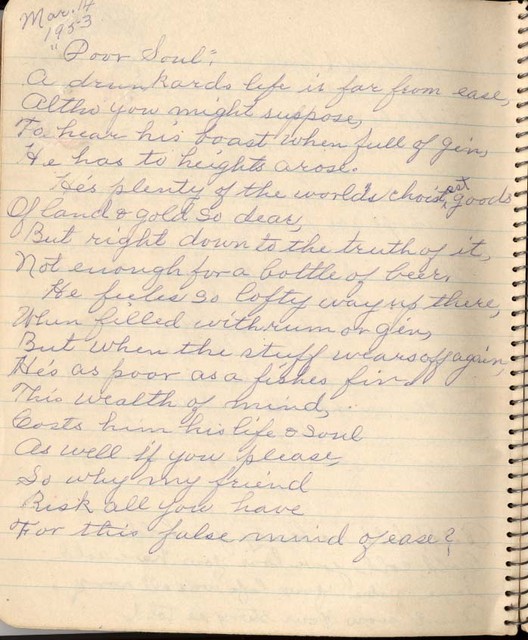 Mar. 14
1953
"Poor Soul".
A drunkards life is far from ease,
Altho you might suppose,
To hear his boast when full of gin,
He has to heights arose.
He's plenty of the world's choicest goods
Of land & gold so dear,
But right down to the truth of it,
Not enough for a bottle of beer.
He feeles so lofty way up there,
When filled with rum or gin,
But when the stuff wears off again,
He's as poor as a fishes fin.
This wealth of mind,
Costs him his life & soul
As well if you please,
So why my friend
Risk all you have
For this false mind of ease?